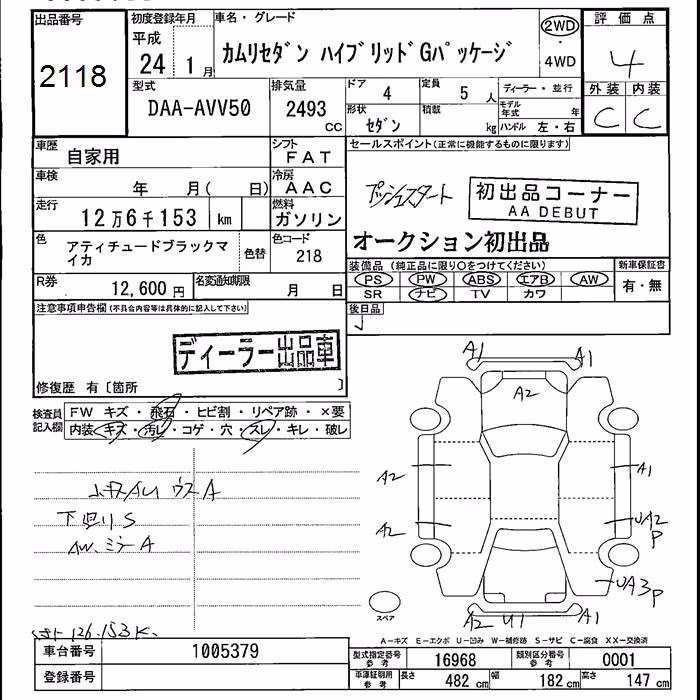 出品番号
2118
初度登録年月
平成
24 1月
車名・グレード
カムリセダン ハイブリッドGパッケージ
2WD
・
4WD
評価点
4
外装 内装
C C
型式
DAA-AVV50
排気量
2493
CC
ドア
4
定員
5 人
形状
セダン
積載
kg
ディーラー・並行
モデル年式 年
ハンドル 左・右
車歴
自家用
シフト
FAT
車検
年 月( 日)
冷房
AAC
走行
12万6千153 km
燃料
ガソリン
色
アティチュードブラックマイカ
色替
色コード
218
R券
12,600 円
名変通知期限
月 日
セールスポイント(正常に機能するものに限ります)
プッシュスタート
初出品コーナー
AA DEBUT
オークション初出品
装備品(純正品に限り○をつけてください)
PS PW ABS エアB AW
SR ナビ TV カワ
新車保証書
有・無
後日品
注意事項申告欄(不具合内容等は具体的に記入して下さい)
ディーラー出品車
修復歴 有〔箇所 〕
検査員記入欄
FW キズ・飛石・ヒビ割・リペア跡・×要
内装・キズ・汚レ・コゲ・穴・スレ・キレ・破レ
下回りS
AW、ミラーA
126.153K
A1 A1
A2
A2 A1
A2 UA2
P
UA3P
A2 U1 A1
スペア
A-キズ E-エクボ U-凹み W-補修跡 S-サビ C-腐食 XX-交換済
車台番号
1005379
登録番号
型式指定番号
参考
16968
類別区分番号
参考
0001
車庫証明用
参考
長さ 482 cm 幅 182 cm 高さ 147 cm